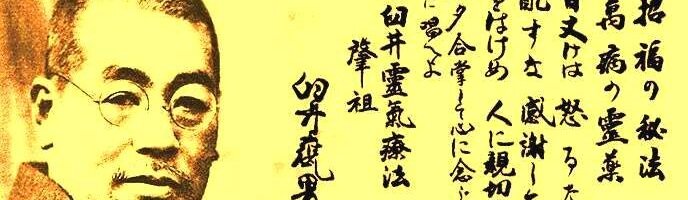 招福の秘法
萬病の靈薬
日丈けは 怒るな
配すな 感謝して
をはけめ 人に親切
夕合掌して心に念じ
に唱へよ
臼井靈氣療法
肇祖
臼井甕男